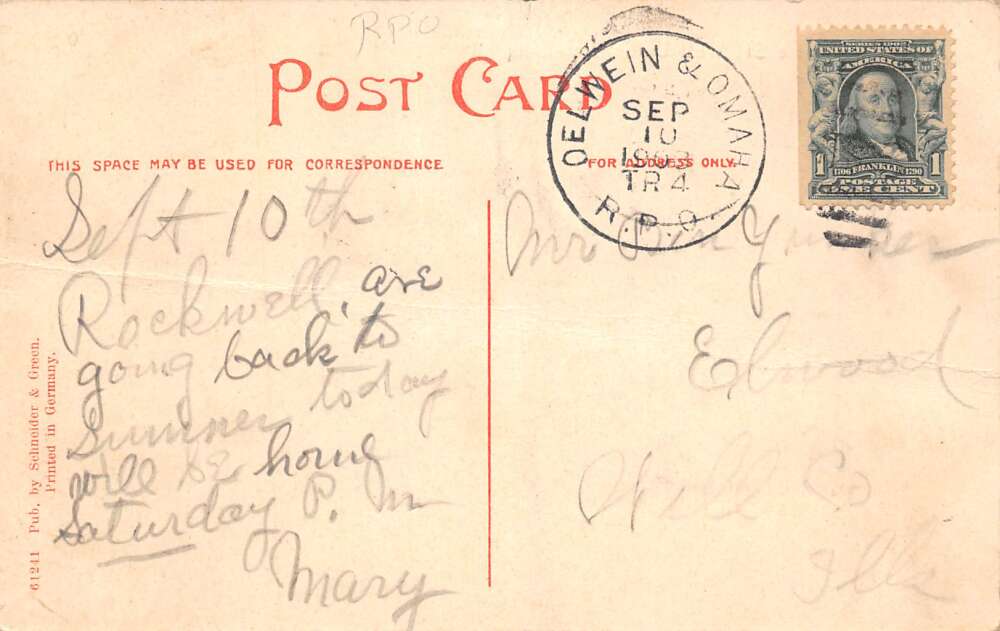 RPO
POST CARD
THIS SPACE MAY BE USED FOR CORRESPONDENCE
FOR ADDRESS ONLY.
OELWEIN & OMAHA
SEP
10
TR 4
R.P.O.
SERIES 1902
UNITED STATES OF
AMERICA
1 1706 FRANKLIN 1790 1
POSTAGE
ONE CENT
Sept 10th
Rockwell, are
going back to
Sumner today
will be home
Saturday P. M
Mary
Mr Ben
Elwood
Will Co
Ills
61241 Pub. by Schneider & Green.
Printed in Germany.